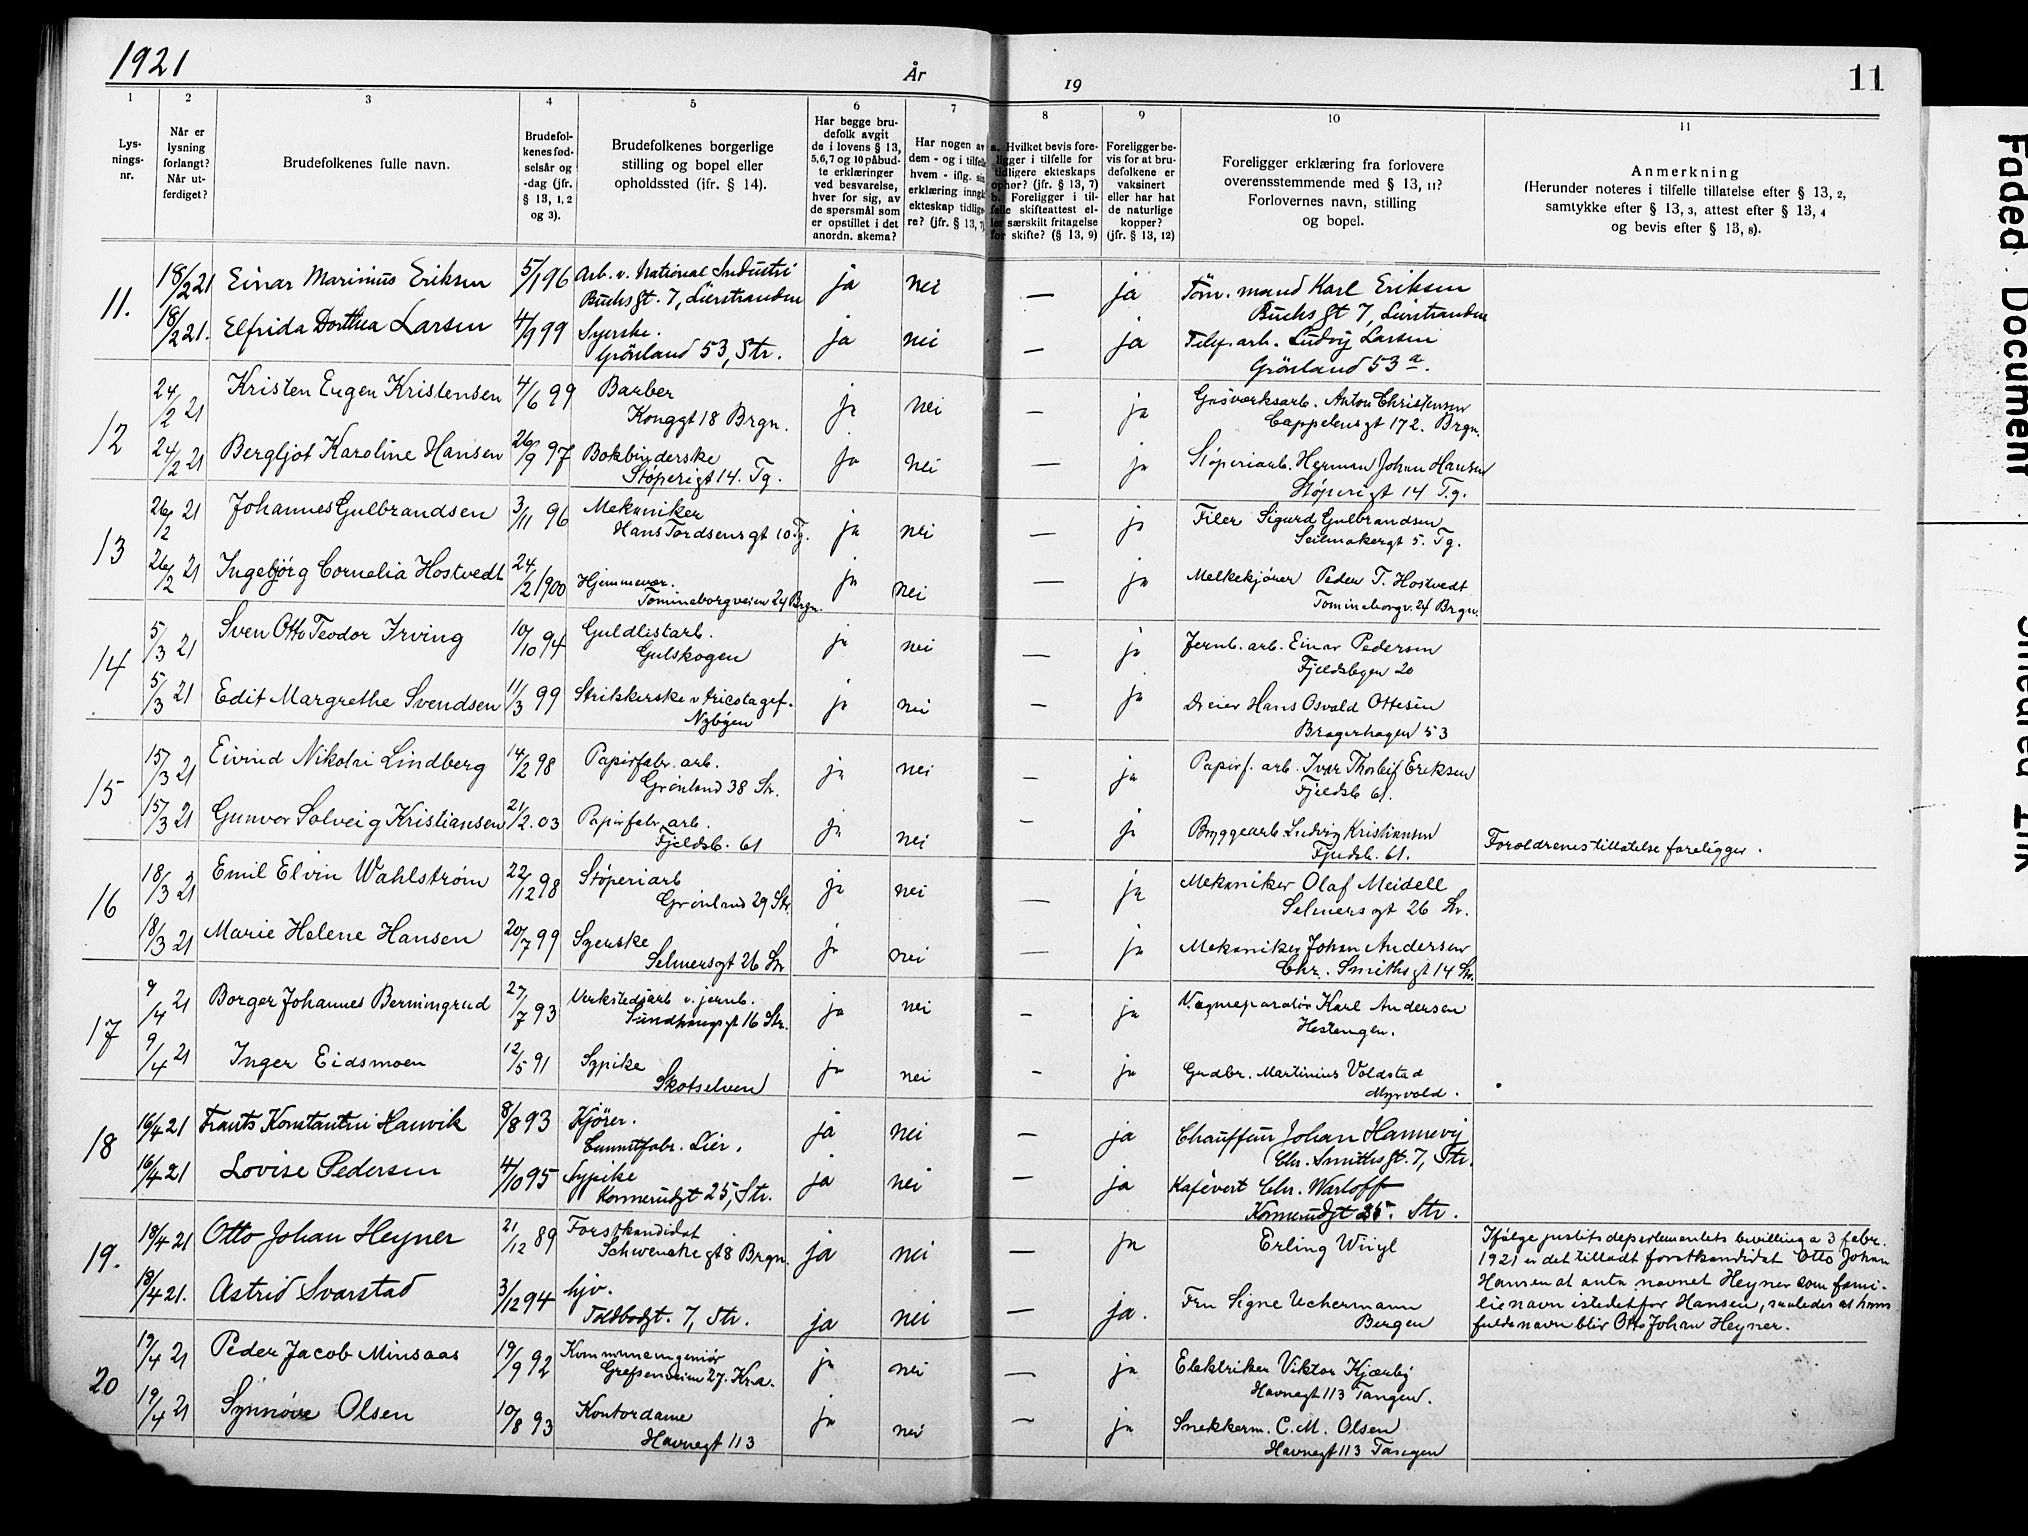 1921
År
19
11
1
2
3
4
5
6
7
8
9
10
11
Lys-
nings-
nr.
Når er
lysning
forlangt?
Når ut-
ferdiget?
Brudefolkenes fulle navn.
Brudefol-
kenes fød-
selsår og
-dag (jfr.
§ 13, 1, 2
og 3).
Brudefolkenes borgerlige
stilling og bopel eller
opholdssted (jfr. § 14).
Har begge bru-
defolk avgit
de i lovens § 13,
5,6,7 og 10 påbud-
te erklæringer
ved besvarelse,
hver for sig, av
de spørsmål som
er opstillet i det
anordn. skema?
Har nogen av
dem - og i tilfelle
hvem - iflg. sin
erklæring inngåt
ekteskap tidlige-
re? (jfr. § 13, 7)
a. Hvilket bevis fore-
ligger i tilfelle for
tidligere ekteskaps
ophør? (jfr. § 13, 7)
b. Foreligger i til-
felle skifteattest el-
ler særskilt fritagelse
for skifte? (§ 13, 9)
Foreligger be-
vis for at bru-
defolkene er
vaksinert
eller har hat
de naturlige
kopper?
(jfr. § 13, 12)
Foreligger erklæring fra forlovere
overensstemmende med § 13, 11?
Forlovernes navn, stilling
og bopel.
Anmerkning
(Herunder noteres i tilfelle tillatelse efter § 13, 2,
samtykke efter § 13, 3, attest efter § 13, 4
og bevis efter § 13, 8).
11.
18/2 21 Einar Marinius Eriksen 5/1 96 Arb. v. National Industri ja nei — ja Töm.mand Karl Eriksen
Buchs gt. 7, Lierstranden Buchs gt 7, Lierstranden
18/2 21. Elfrida Dorthea Larsen 4/9 99 Syerske. ja nei — ja Telef.arb. Ludvig Larsen
Grönland 53, Str. Grönland 53 a.
12
24/2 21 Kristen Eugen Kristensen 4/6 99 Barber ja nei — ja Gasværksarb. Anton Christensen
Konggt 18 Brgn. Cappelensgt 172. Brgn.
24/2 21 Bergljot Karoline Hansen 26/9 97 Bokbinderske ja nei — ja Støperiarb. Herman Johan Hansen
Støperigt 14. Tg. Støperigt 14 Tg.
13
26/2 21 Johannes Gulbrandsen 3/11 96 Mekaniker ja nei — ja Filer Sigurd Gulbrandsen
Hans Tordsensgt 10 Tg. Seilmakergt 5. Tg.
26/2 21 Ingebjørg Cornelia Hostvedt 24/2 1900 Hjemmevær. ja nei — ja Melkekjører Peder T. Hostvedt
Tomineborgveien 24 Brgn. Tomineborgv. 24 Brgn.
14
5/3 21 Sven Otto Teodor Irving 10/10 94 Guldlistarb. ja nei — ja Jernb. arb. Einar Pedersen
Gulskogen Fjeldsbyen 20
5/3 21 Edit Margrethe Svendsen 11/3 99 Strikkerske v tricotagef. ja nei — ja Dreier Hans Osvald Ottesen
Nybyen Bragerhagen 53
15
15/3 21 Eivind Nikolai Lindberg 14/2 98 Papirfabr. arb. ja nei — ja Papirf. arb. Ivar Thorleif Eriksen
Grønland 38 Str. Fjeldsb 61.
15/3 21 Gunvor Solveig Kristiansen 21/2. 03 Papirfabr. arb. ja nei — ja Bryggearb Ludvig Kristiansen Forældrenes tillatelse foreligger.
Fjeldsb. 61 Fjeldsb. 61.
16
18/3 21 Emil Elvin Wahlstrøm 22/12 98 Støperiarb ja nei — ja Mekaniker Olaf Meidell
Grønland 29 Str. Selmersgt 26 Str.
18/3 21 Marie Helene Hansen 20/7 99 Syerske ja nei — ja Mekaniker Johan Andersen
Selmersgt 26 Str Chr. Smithsgt 14 Str.
17
9/4 21 Borger Johannes Berningrud 27/7 93 Verkstedsarb v. jernb. ja nei — ja Vognreparatør Karl Andersen
Sundhaugsgt 16 Str. Hestengen.
9/4 21 Inger Eidsmoen 12/5 91 Sypike ja nei — ja Gudbr. Martinius Voldstad
Skotselven Myrvold.
18
16/4 21 Frants Konstantin Hanvik 8/8 93 Kjører. ja nei — ja Chauffeur Johan Hannevig
Cementfabr. Lier. Chr. Smithsgt. 7, Str.
16/4 21 Lovise Pedersen 4/10 95 Sypike ja nei — ja Kafévert Chr. Warloff
Konnerudgt 25, Str. Konnerudgt 25. Str.
19.
18/4 21 Otto Johan Heyner 21/12 89 Forstkandidat ja nei — ja Erling Wiigl
Schwenckegt 8 Brgn.
18/4 21. Astrid Svarstad 3/12 94 hjv. ja nei — ja. Fru Signe Uchermann
Toldbodgt. 7, Str. Bergen
Ifølge justitsdepartementets bevilling a 3 febr.
1921 er det tilladt forstkandidat Otto Johan
Hansen at anta navnet Heyner som fami-
lienavn istedetfor Hansen, saaledes at hans
fulde navn blir Otto Johan Heyner.
20
19/4 21 Peder Jacob Minsaas 19/9 92 Kommuneingeniør ja nei — ja Elektriker Viktor Kjærby
Grefsenveien 27. Kr.a. Havnegt 113 Tangen.
19/4 21 Synnøve Olsen 10/8 93 Kontordame ja nei — ja Snekkerm. C. M. Olsen
Havnegt 113 Havnegt 113 Tangen
Faded Document
Smeared Ink